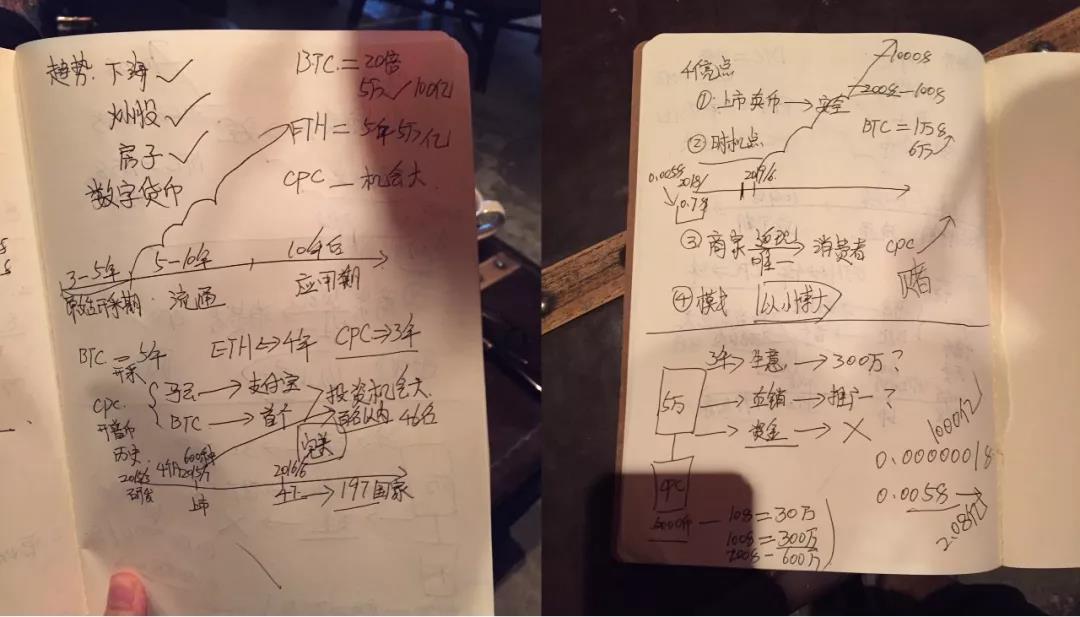 趋势: 下海 ✓
BTC = 20倍
5万 / 100亿
炒股 ✓
房子 ✓
ETH = 5年5万亿
数字货币
CPC — 机会大
3-5年 5-10年 10年后
原始开采期 流通 应用期
BTC = 5年
开采
ETH ⇔ 4年 CPC ⇒ 3年
CPC
开普币
马云 → 支付宝 投资机会大
BTC → 首个 百名以内 46名
历史
600种
2016/6
研发
上市
197国家
4亮点
1000$
① 上市卖币 → 安全
200$—100$
② 时机点
BTC = 1万$
6万
0.005$
2018/
2019/6
0.7$
③ 商家 返现 → 消费者
唯一
CPC
赌
④ 模式 以小博大
3年 → 生意 → 300万?
5万
→ 直销 → 推广?
→ 资金 → X
1000亿
0.00000018
CPC
0.0058 →
2.08亿
— 10$ = 30万
100$ = 300万
200$ — 600万